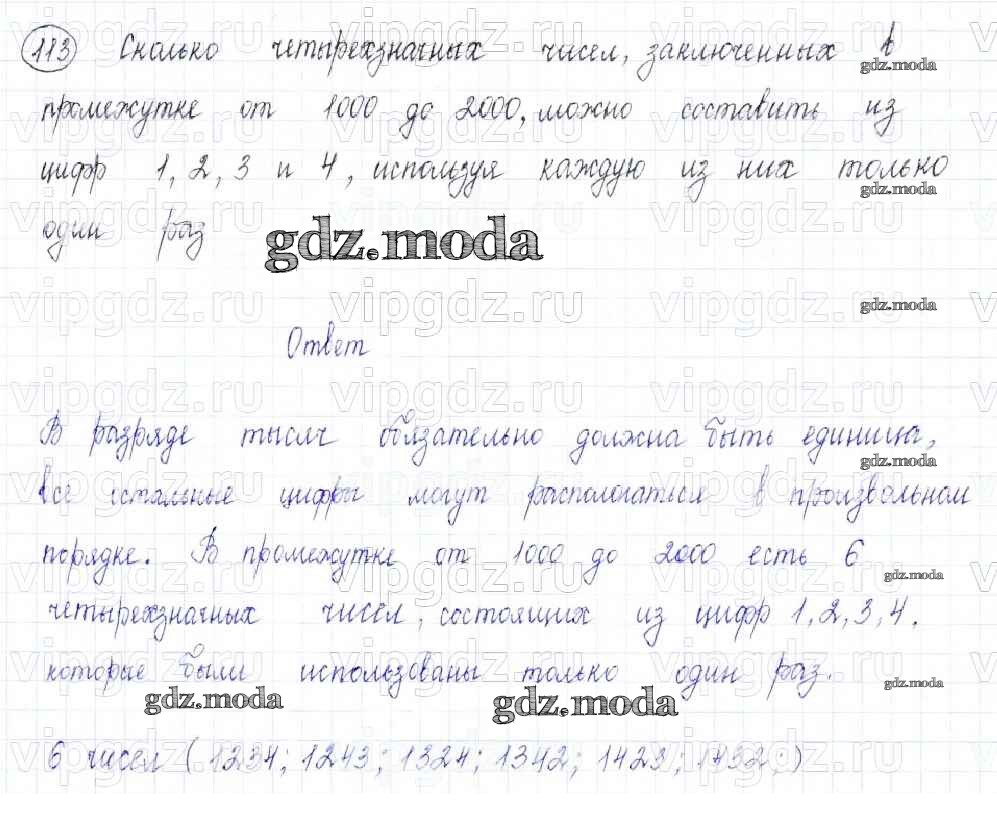 113 Сколько четырехзначных чисел, заключенных в
промежутке от 1000 до 2000, можно составить из
цифр 1, 2, 3 и 4, используя каждую из них только
один раз
gdz.moda
Ответ
В разряде тысяч обязательно должна быть единица,
все остальные цифры могут распологаться в произвольном
порядке. В промежутке от 1000 до 2000 есть 6
четырехзначных чисел, состоящих из цифр 1, 2, 3, 4.
которые были использованы только один раз.
gdz.moda gdz.moda
6 чисел (1234; 1243; 1324; 1342; 1423; 1432;)